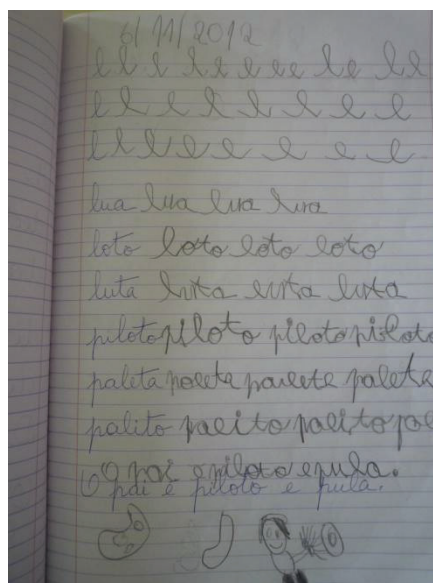 6/11/2012
l l l l l l l l l l l
l l l l l l l l l
l l l l l l l l l
lua lua lua lua
loto loto loto loto
luta luta luta luta
piloto piloto piloto piloto
paleta paleta palete
palito palito palito
O pai e piloto e pula.
O pai é piloto e pula.